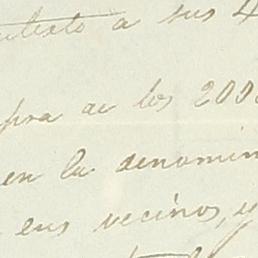 a sus 4
pra de los 200
en la denomin
sus vecinos, y